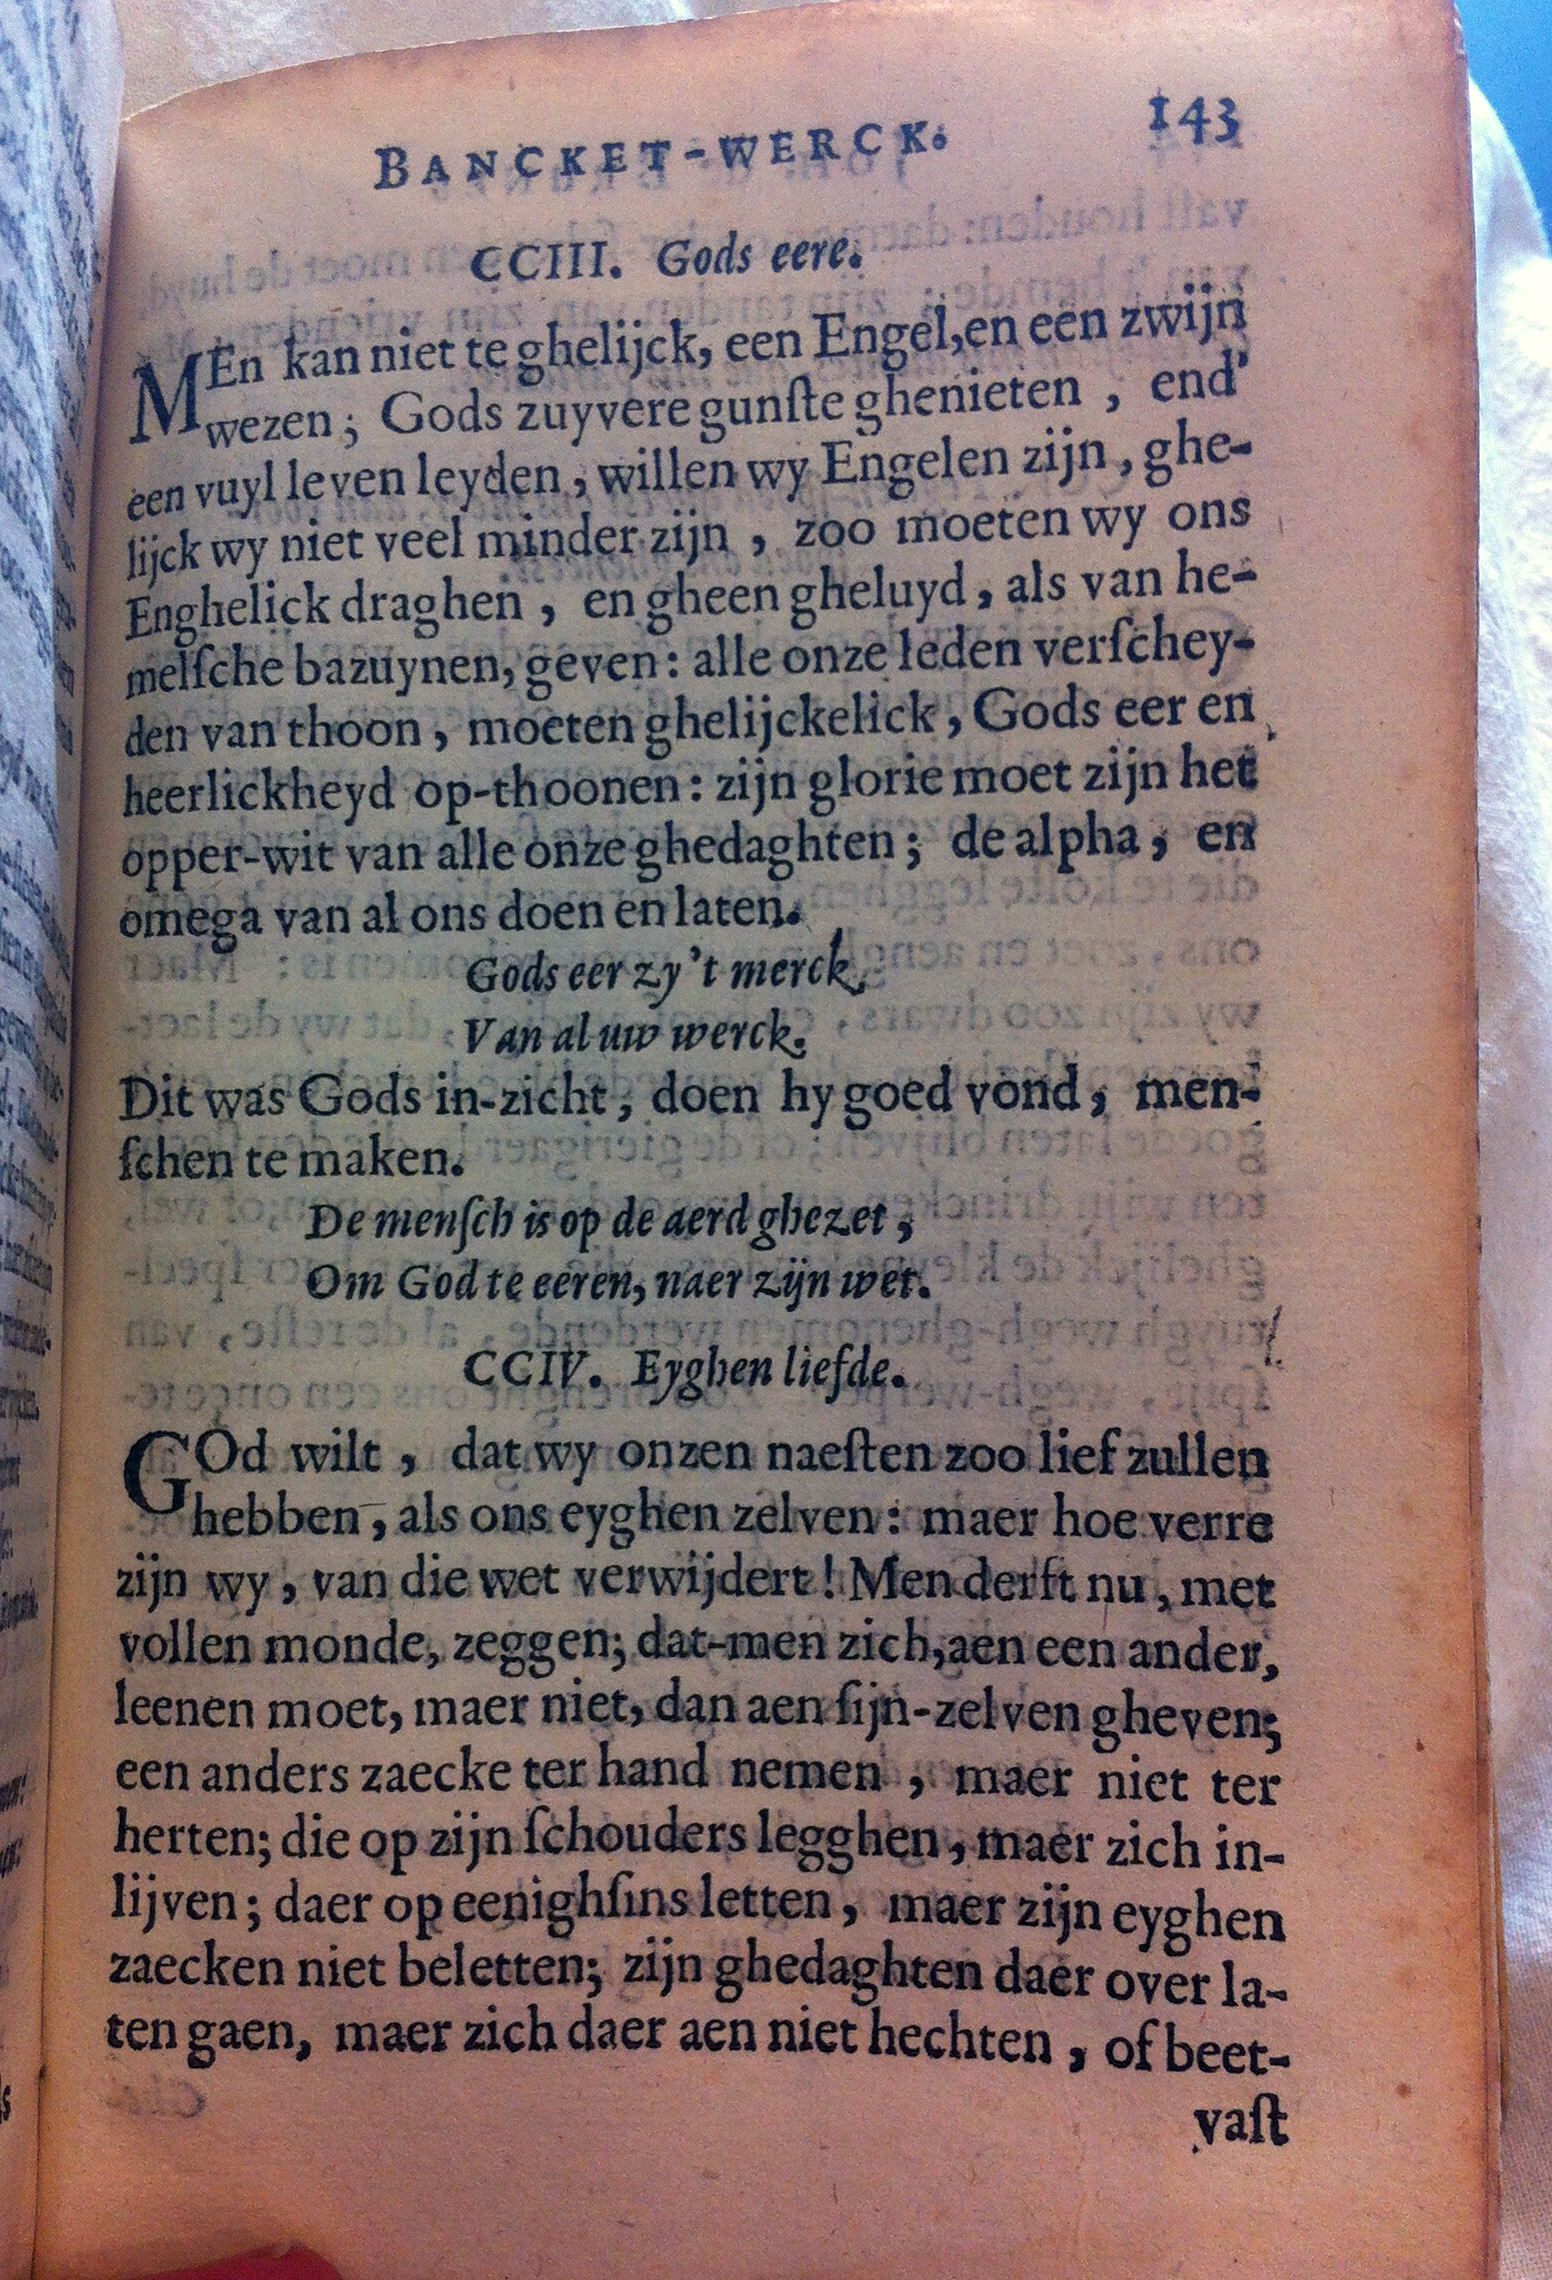 BANCKET-WERCK. 143
CCIII. Gods eere.
MEn kan niet te ghelijck, een Engel, en een zwijn
wezen; Gods zuyvere gunſte ghenieten, end'
een vuyl leven leyden, willen wy Engelen zijn, ghe-
lijck wy niet veel minder zijn, zoo moeten wy ons
Enghelick draghen, en gheen gheluyd, als van he-
melſche bazuynen, geven: alle onze leden verſchey-
den van thoon, moeten ghelijckelick, Gods eer en
heerlickheyd op-thoonen: zijn glorie moet zijn het
opper-wit van alle onze ghedaghten; de alpha, en
omega van al ons doen en laten.
Gods eer zy 't merck,
Van al uw werck.
Dit was Gods in-zicht, doen hy goed vond, men-
ſchen te maken.
De menſch is op de aerd ghezet,
Om God te eeren, naer zijn wet.
CCIV. Eyghen liefde.
GOd wilt, dat wy onzen naeſten zoo lief zullen
hebben, als ons eyghen zelven: maer hoe verre
zijn wy, van die wet verwijdert! Men derft nu, met
vollen monde, zeggen; dat-men zich, aen een ander,
leenen moet, maer niet, dan aen ſijn-zelven gheven;
een anders zaecke ter hand nemen, maer niet ter
herten; die op zijn ſchouders legghen, maer zich in-
lijven; daer op eenighſins letten, maer zijn eyghen
zaecken niet beletten; zijn ghedaghten daer over la-
ten gaen, maer zich daer aen niet hechten, of beet-
vaſt